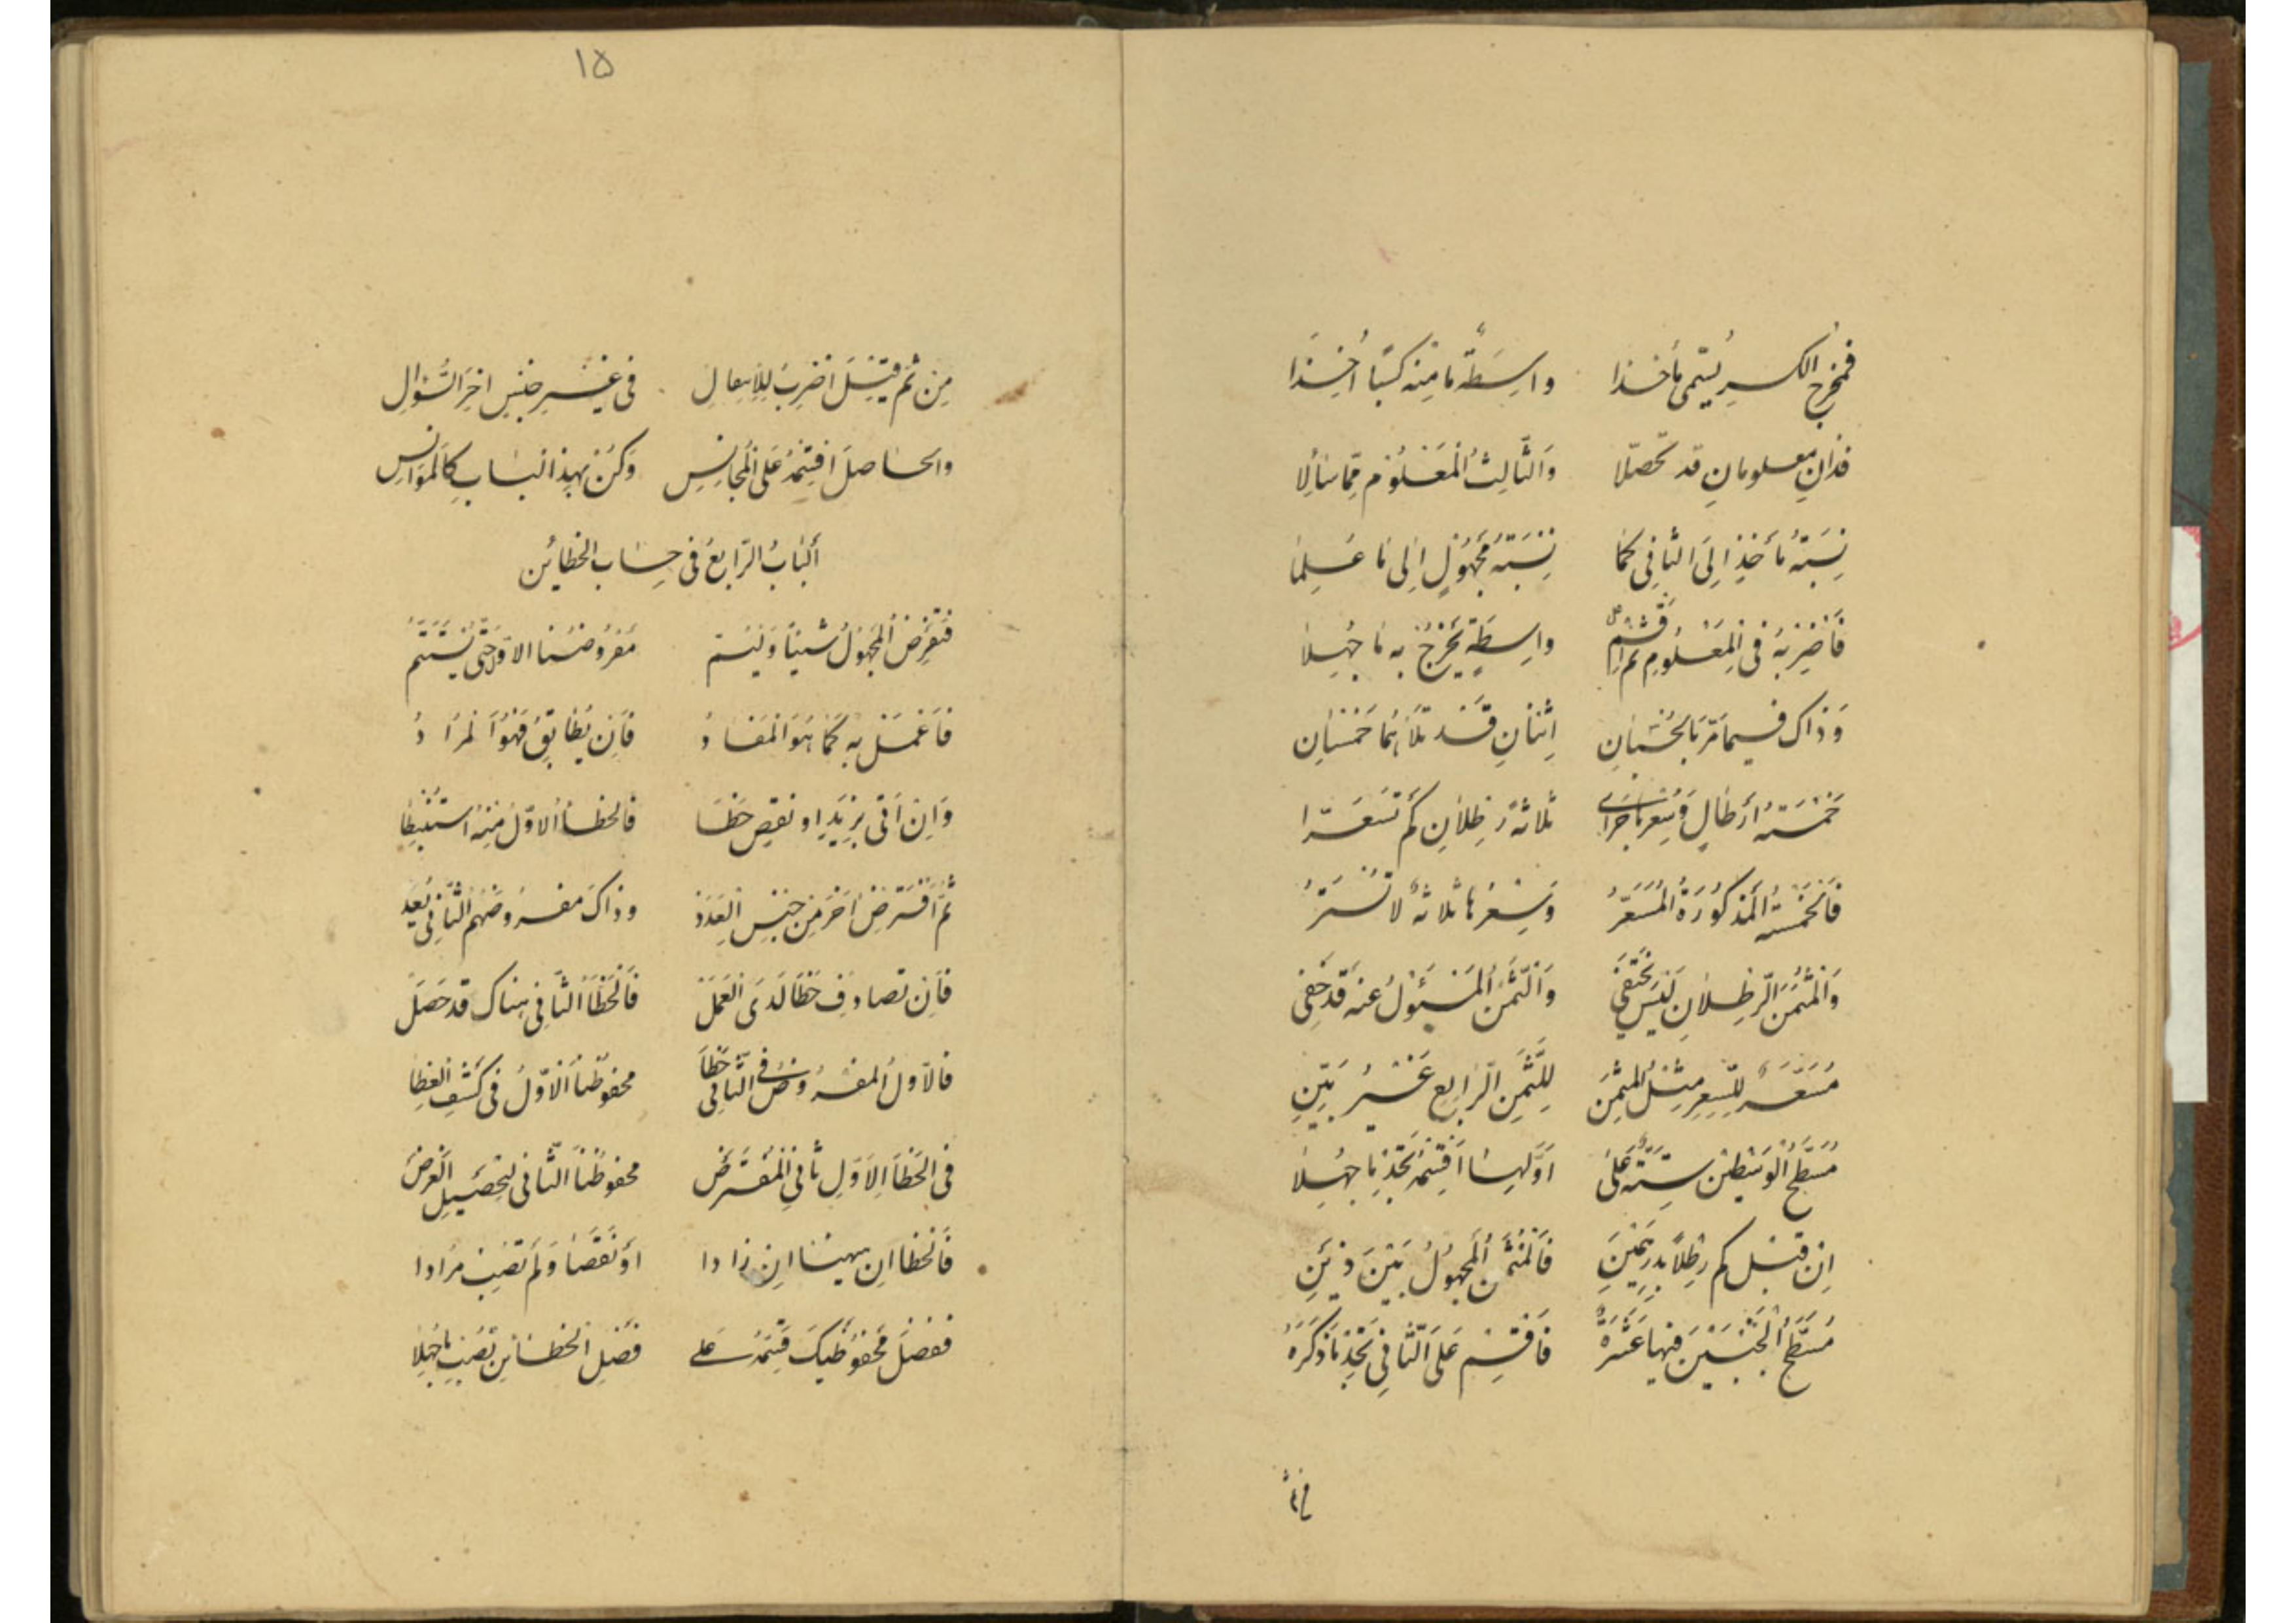 فمخرج الكسر يسمى مأخذا واسطة ما منه كسبا أخذا
فذان معلومان قد تحصلا والثالث المعلوم مما سألا
نسبة مأخذ إلى الثاني كما نسبة مجهول إلى ما علما
فاضربه في المعلوم ثم اقسم على واسطة يخرج به ما جهلا
وذاك فيما مر بالحسبان اثنان قد تلاهما خمسان
خمسة أرطال وسعرها جرى ثلاثة رطلان كم تسعرا
فالخمسة المذكورة المسعر وسعرها ثلاثة لا تستر
والمثمن الرطلان ليس يختفي والثمن المسئول عنه قد خفي
مسعر للسعر مثل المثمن للثمن الرابع غير بين
مسطح الوسطين ستة على أولها اقسمه تجد ما جهلا
ان قيل كم رطلا بدرهمين فالمثمن المجهول بين ذين
مسطح الجنبين فيها عشرة فاقسم على الثاني تجد ما ذكره
من ثم
١٥
من ثم قيل اضرب للانفعال في غير جنس اخر السؤال
والحاصل اقسمه على المجانس وكن بهذا الباب كالموانس
ألباب الرابع في حساب الخطائن
فنفرض المجهول شيئا ونسم مفروضنا الاول حتى نستتم
فاعمل به كما هو المفاد فان يطابق فهو المراد
وان اتى بزيد او نقص خطا فالخطأ الاول منه استنبطا
ثم افترض اخر من جنس العدد وذاك مفروضهم الثاني يعد
فان تصادف خطا لدى العمل فالخطأ الثاني هناك قد حصل
فالاول المفروض في الثاني خطأ محفوظنا الاول في كشف الغطا
في الخطأ الاول ثاني المفترض محفوظنا الثاني لتحصيل الغرض
فالخطاان ههنا ان زادا او نقصا ولم تصب مرادا
ففضل محفوظيك قسمه على فضل الخطأين تصب ما جهلا